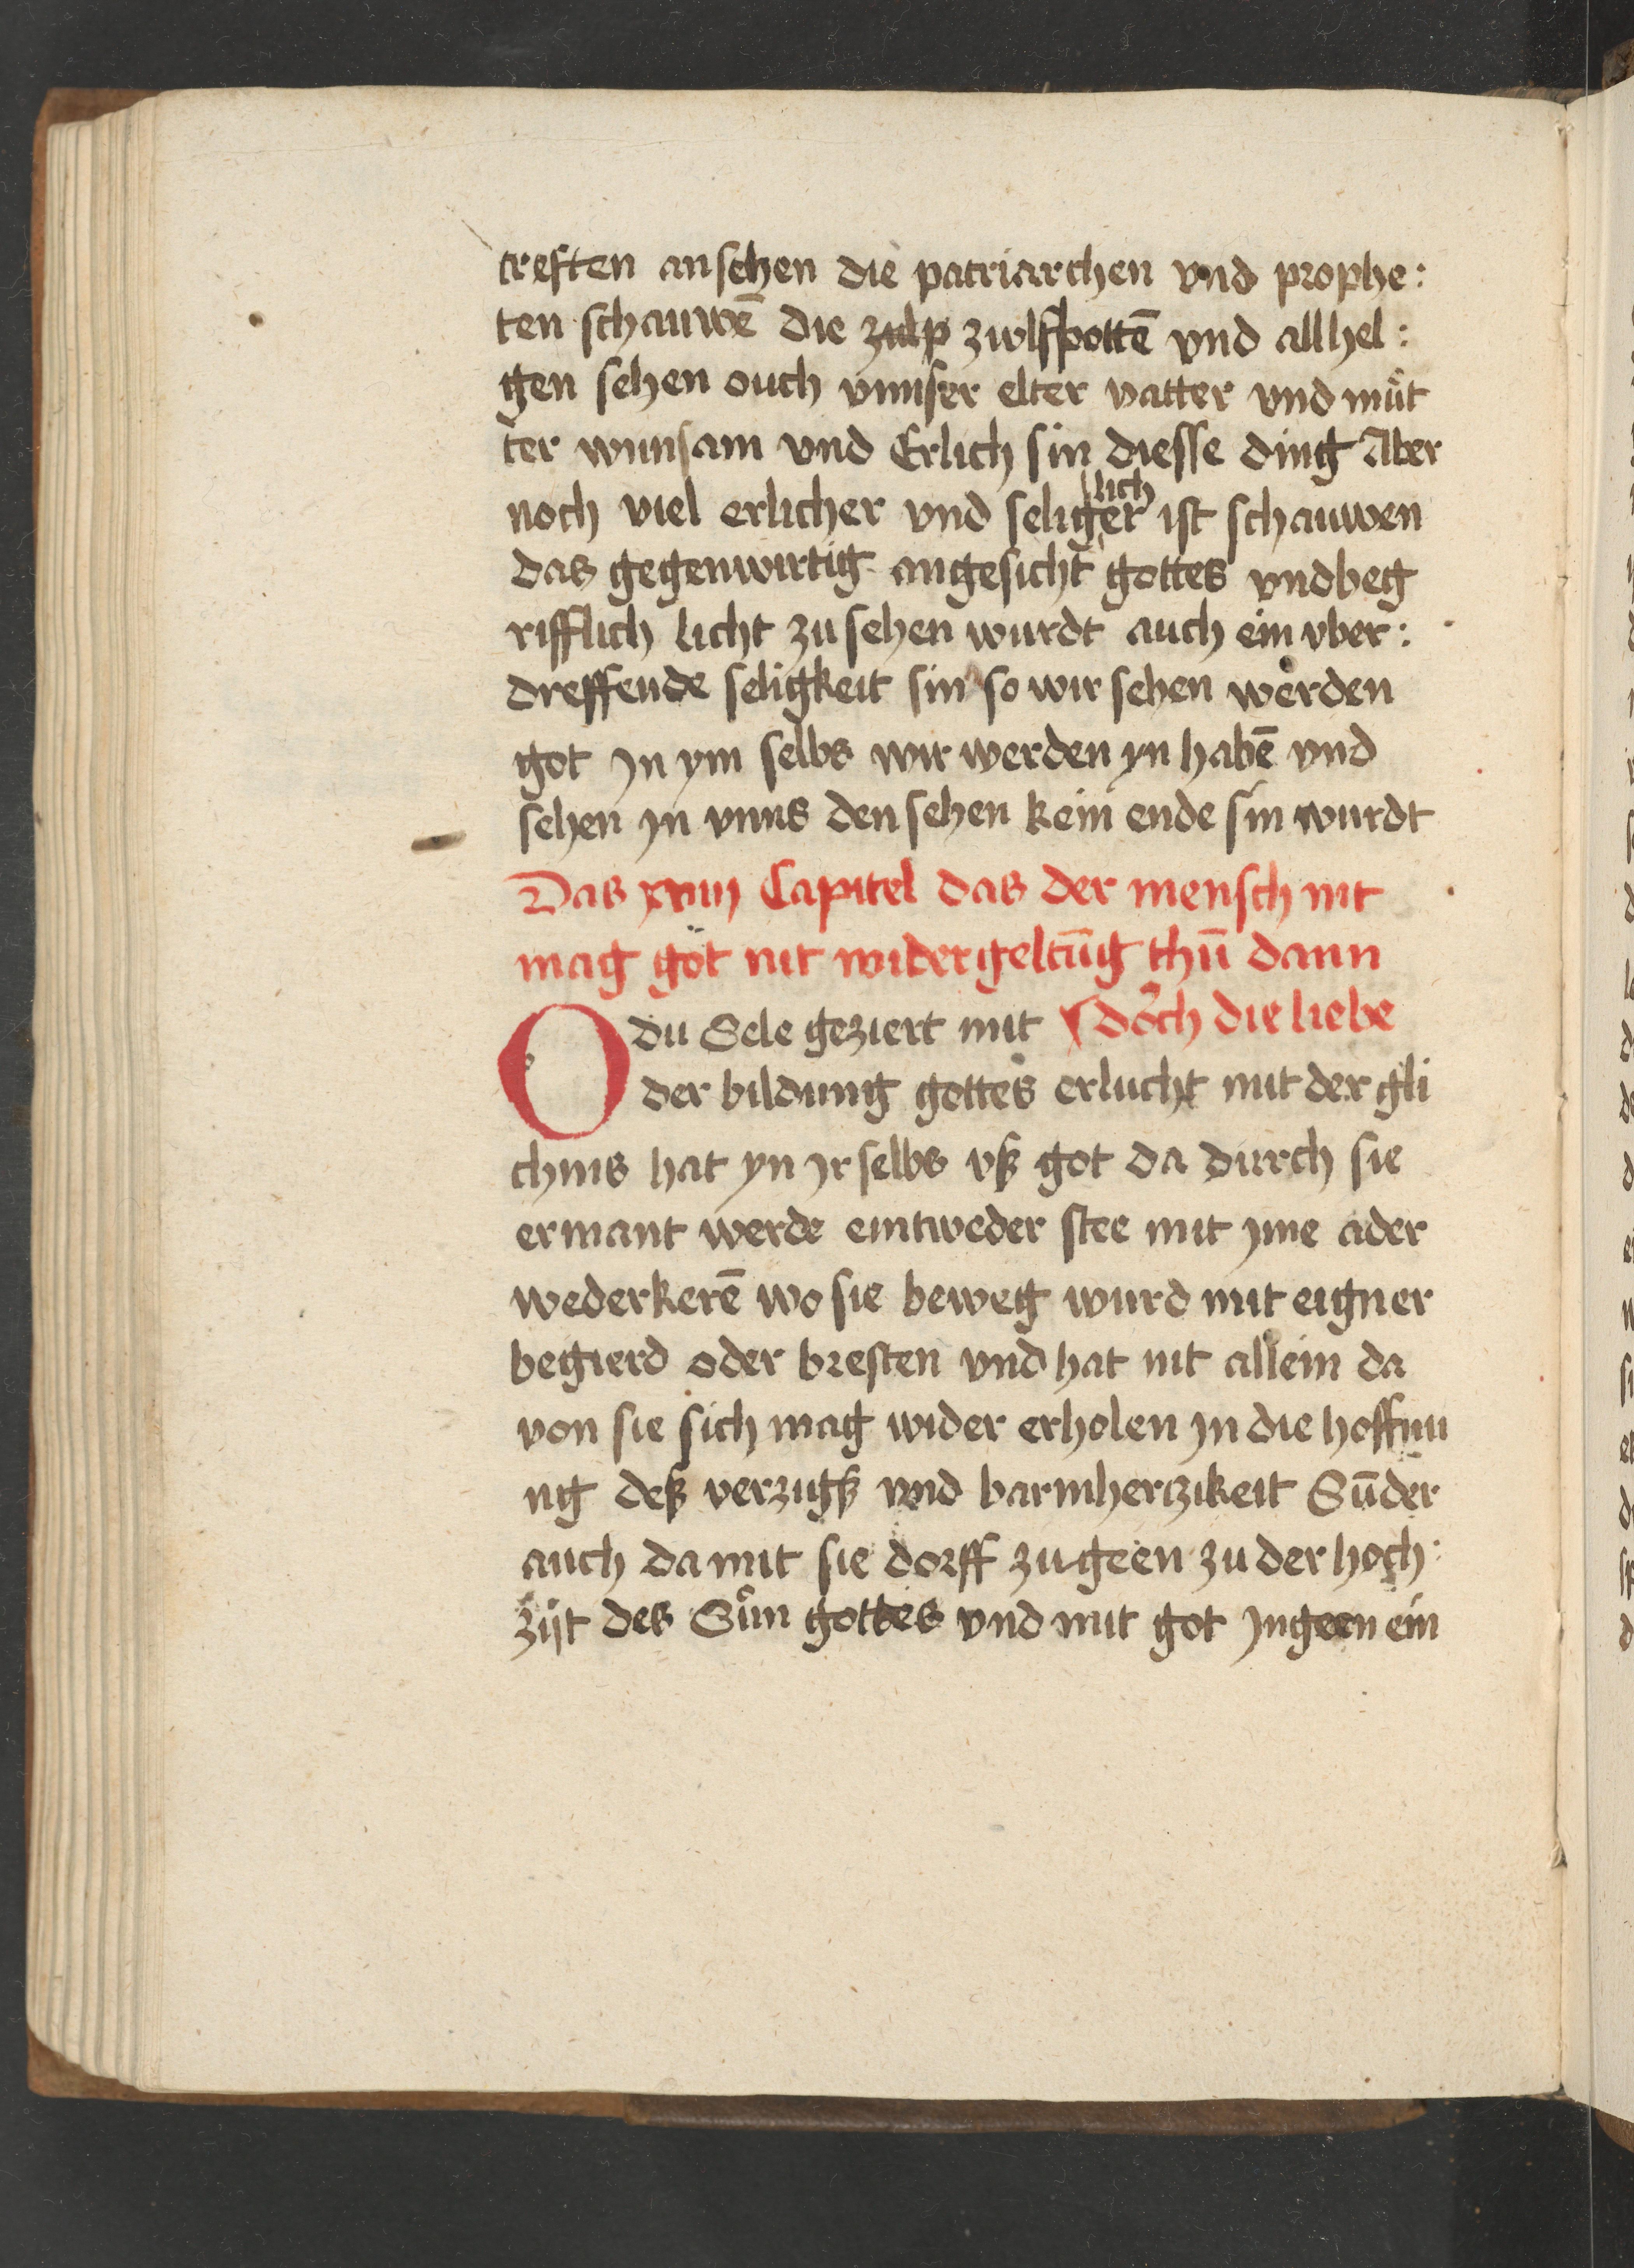 treften ansehen die patriarchen vnd prophe:
ten schauwē die zulp zwlfpottē vnd all hel:
gen sehen ouch vnnser elter vatter vnd müt
ter wunsam vnd Erlich sin diesse ding Aber
noch viel erlicher vnd seliger lich ist schauwen
das gegenwirtig angesicht gottes vndbeg
rifflich licht zu sehen wurdt auch ein vber:
dreffende seligkeit sin so wir sehen werden
got Jn ym selbs wir werden yn habē vnd
sehen Jn vnns den sehen kein ende sin wurdt
Das Capitel das der mensch nit
mag got nit widergeltūg thū dann
O du Sele geziert mit doch die liebe
der bildung gottes erlucht mit der gli
chnis hat yn Jr selbs vß got da durch sie
ermant werde eintweder stee mit Jme ader
wederkerē wo sie beweg wurd mit eigner
begierd oder bresten vnd hat nit allein da
von sie sich mag wider erholen Jn die hoffnu
ng deß verzugß vnd barmherzikeit Sūder
auch da mit sie dorff zu geen zu der hoch:
zijt des Sün gottes vnd mit got Jngeen ein